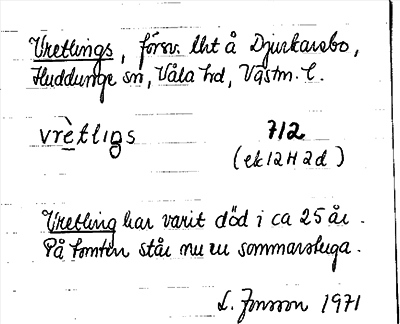 Vretlings, försv. lht å Djurkarsbo,
Huddunge sn, Våla hd, Västm. l.
vrètligs 712
(ek 12 H 2d)
Vretling har varit död i ca 25 år.
På tomten står nu en sommarstuga.
L. Jonsson 1971